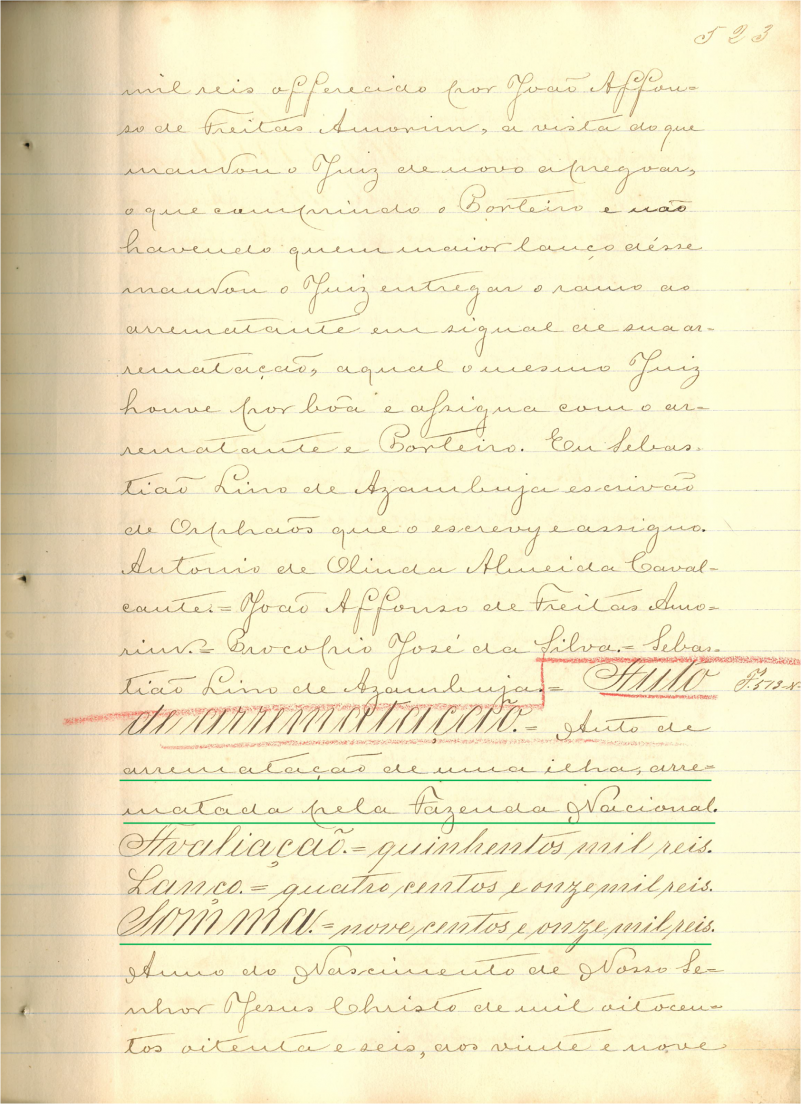 523
mil reis offerecido por João Affon=
so de Freitas Amorim, a vista do que
mandou o Juiz de novo apregoar,
o que comprindo o Porteiro e não
havendo quem maior lanço désse
mandou o Juiz entregar o ramo ao
arrematante em signal de sua ar-
rematação, a qual o mesmo Juiz
houve por bôa e assigna com o ar-
rematante e Porteiro. Eu Sebas-
tião Lino de Azambuja escrivão
de Orphaõs que o escrevy e assigno.
Antonio de Olinda Almeida Caval-
cante.= João Affonso de Freitas Amo-
rim.= Procopio José da Silva.= Sebas-
tião Lino de Azambuja.= Auto
de arrematação.= Auto de
arrematação de uma ilha, arre=
matada pela Fazenda Nacional.
Avaliação.= quinhentos mil reis.
Lanço.= quatro centos e onze mil reis.
Somma.= nove centos e onze mil reis.
Anno do Nascimento de Nosso Se=
nhor Jesus Christo de mil oitocen=
tos oitenta e seis, aos vinte e nove